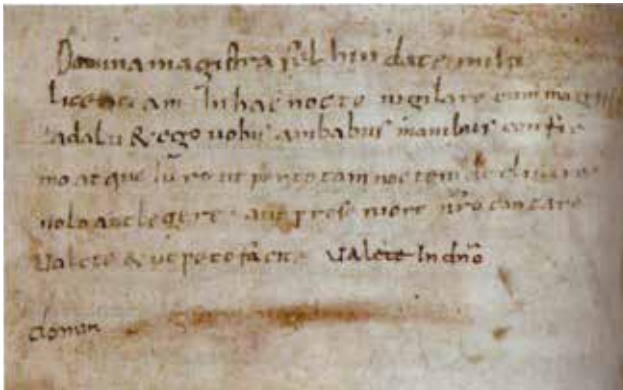 Domina magistra felhin date mihi
licentiam Inhac nocte uigilare cum
adalu & ego uobis ambabus manibus confir
mo atque iuro ut pertotam noctem declinare
nolo aut legere aut pro seniore nr̄o cantare
Valete & ut peto facite Valete Indn̄o